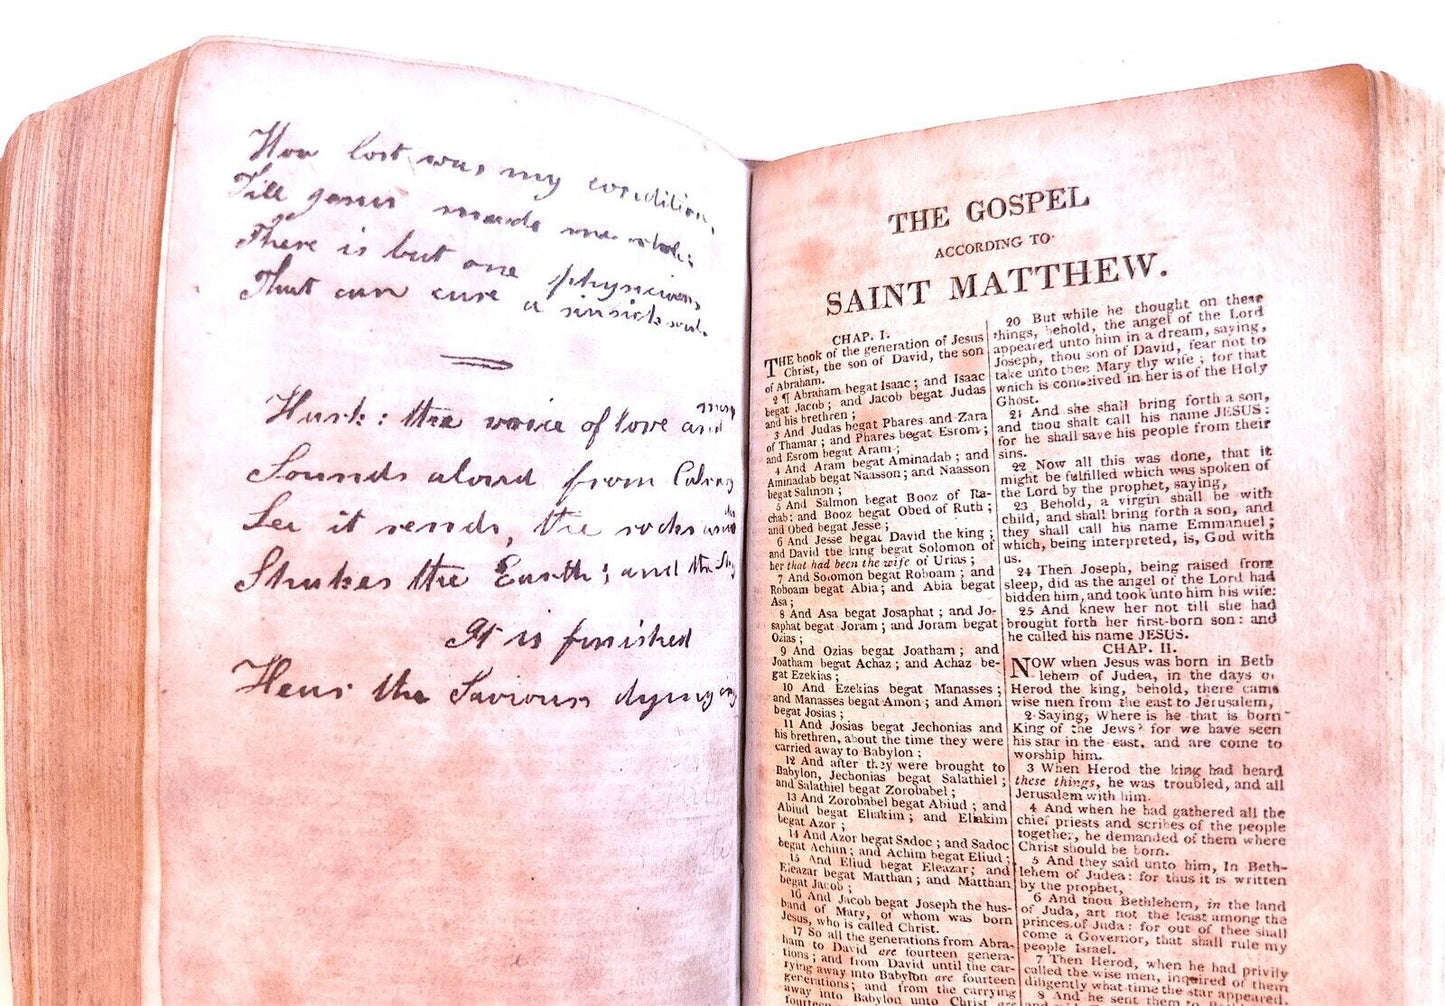 How lost was my condition,
Till Jesus made me whole:
There is but one physician,
That can cure a sinsick soul.
Hark: the voice of love and mercy
Sounds aloud from Calvary
See it rends, the rocks
Shakes the Earth; and the Sky
It is finished
Hear the Saviour dying cry
THE GOSPEL
ACCORDING TO
SAINT MATTHEW.
CHAP. I.
THE book of the generation of Jesus
Christ, the son of David, the son
of Abraham.
2 ¶ Abraham begat Isaac; and Isaac
begat Jacob; and Jacob begat Judas
and his brethren;
3 And Judas begat Phares and Zara
of Thamar; and Phares begat Esrom;
and Esrom begat Aram;
4 And Aram begat Aminadab; and
Aminadab begat Naasson; and Naasson
begat Salmon;
5 And Salmon begat Booz of Ra-
chab; and Booz begat Obed of Ruth;
and Obed begat Jesse;
6 And Jesse begat David the king;
and David the king begat Solomon of
her that had been the wife of Urias;
7 And Solomon begat Roboam; and
Roboam begat Abia; and Abia begat
Asa;
8 And Asa begat Josaphat; and Jo-
saphat begat Joram; and Joram begat
Ozias;
9 And Ozias begat Joatham; and
Joatham begat Achaz; and Achaz be-
gat Ezekias;
10 And Ezekias begat Manasses;
and Manasses begat Amon; and Amon
begat Josias;
11 And Josias begat Jechonias and
his brethren, about the time they were
carried away to Babylon;
12 And after they were brought to
Babylon, Jechonias begat Salathiel;
and Salathiel begat Zorobabel;
13 And Zorobabel begat Abiud; and
Abiud begat Eliakim; and Eliakim
begat Azor;
14 And Azor begat Sadoc; and Sadoc
begat Achim; and Achim begat Eliud;
15 And Eliud begat Eleazar; and
Eleazar begat Matthan; and Matthan
begat Jacob;
16 And Jacob begat Joseph the hus-
band of Mary, of whom was born
Jesus, who is called Christ.
17 So all the generations from Abra-
ham to David are fourteen genera-
tions; and from David until the car-
rying away into Babylon are fourteen
generations; and from the carrying
away into Babylon unto Christ are
fourteen
20 But while he thought on these
things, behold, the angel of the Lord
appeared unto him in a dream, saying,
Joseph, thou son of David, fear not to
take unto thee Mary thy wife; for that
which is conceived in her is of the Holy
Ghost.
21 And she shall bring forth a son,
and thou shalt call his name JESUS:
for he shall save his people from their
sins.
22 Now all this was done, that it
might be fulfilled which was spoken of
the Lord by the prophet, saying,
23 Behold, a virgin shall be with
child, and shall bring forth a son, and
they shall call his name Emmanuel;
which, being interpreted, is, God with
us.
24 Then Joseph, being raised from
sleep, did as the angel of the Lord had
bidden him, and took unto him his wife:
25 And knew her not till she had
brought forth her first-born son: and
he called his name JESUS.
CHAP. II.
NOW when Jesus was born in Beth
lehem of Judea, in the days of
Herod the king, behold, there came
wise men from the east to Jerusalem,
2 Saying, Where is he that is born
King of the Jews? for we have seen
his star in the east, and are come to
worship him.
3 When Herod the king had heard
these things, he was troubled, and all
Jerusalem with him.
4 And when he had gathered all the
chief priests and scribes of the people
together, he demanded of them where
Christ should be born.
5 And they said unto him, In Beth-
lehem of Judea: for thus it is written
by the prophet,
6 And thou Bethlehem, in the land
of Juda, art not the least among the
princes of Juda: for out of thee shall
come a Governor, that shall rule my
people Israel.
7 Then Herod, when he had privily
called the wise men, inquired of them
diligently what time the star appeared.
8 And he sent them to